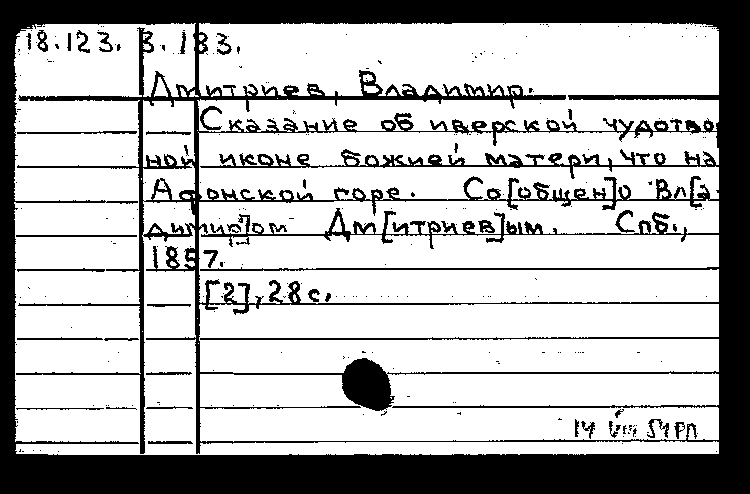 18.123. 8. 183.
Дмитриев, Владимир.
Сказание об иверской чудотвор
ной иконе божией матери, что на
Афонской горе. Со[общен]о Вл[а-
димир]ом Дм[итриев]ым. Спб.,
1857.
[2], 28 с.
14 VIII 54 РП